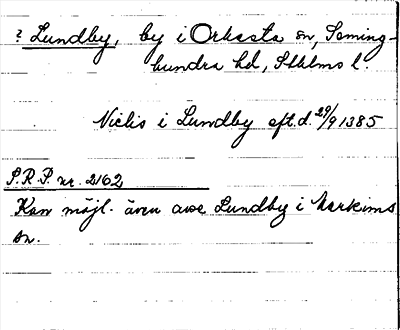 ? Lundby, by i Orkesta sn, Seming-
hundra hd, Sthlms l.
Niclis i Lundby eft. d. 29/9 1385
S.R.P. nr. 2162
Kan möjl. även avse Lundby i Markims
sn.